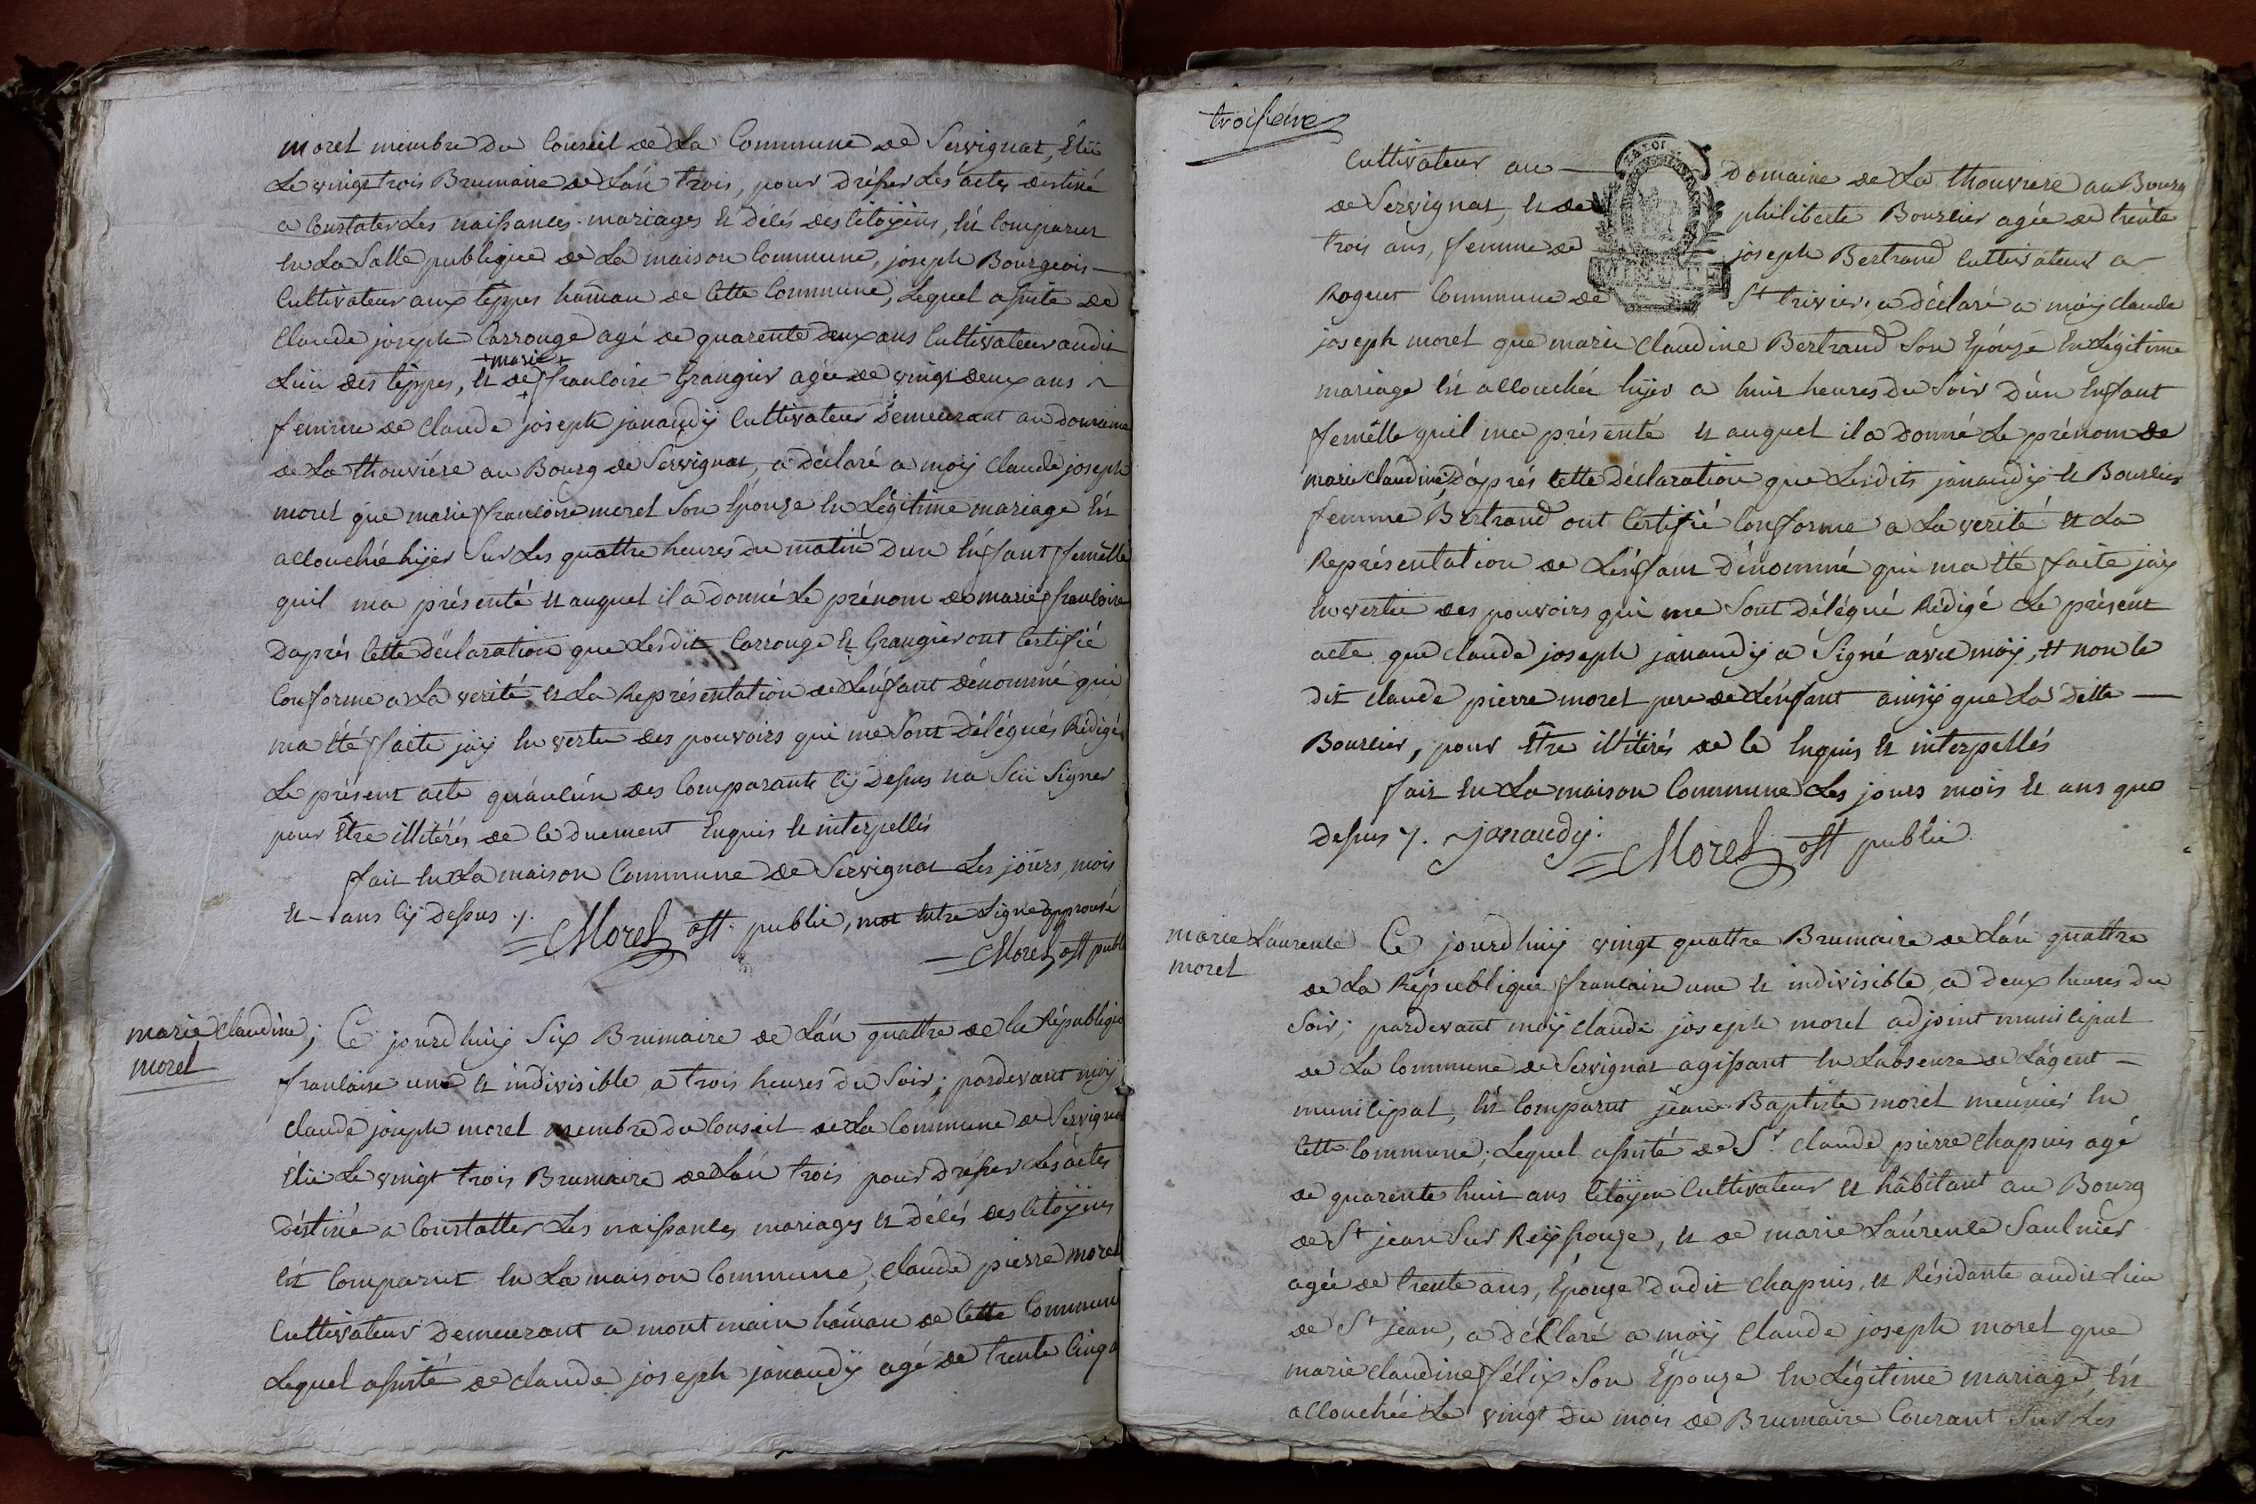 morel membre du Conseil de La Commune de Servignat, Élü
Le vingt trois Brumaire de L'án trois, pour dréßer Les actes destiné
a Constater Les naißances mariages et décés des Citoÿens, Est Comparut
En La Salle publique de La maison Commune, joseph Bourgeois —
Cultivateur aux teppes hamau de Cette Commune, Lequel aßisté de
Claude joseph Carrouge agé de quarente deux ans Cultivateur audit
Lieu des teppes, et de marie francoise Grangier agée de vingt deux ans
femme de Claude joseph janaudÿ Cultivateur Demeurant au domaine
de La thouviére au Bourg de Servignat, a déclaré a moÿ Claude joseph
morel que marie francoise morel Son Épouze En Légitime mariage Est
accouchée hÿer Sur Les quattre heures du matin d'un Enfant femélle
qu'il ma présenté et auquel il a donné Le prénom de marie francoise
D'aprés Cette déclaration que Lesdit Carrouge et Grangier ont Certifié
Conforme a La verité et La Représentation de L'énfant dénommé qui
ma Été faite jaÿ En vertu des pouvoirs qui me Sont délégués Rédigé
Le présent acte qu'aucún des Comparants Cÿ deßus na Sçü Signer
pour Être illitérés de Ce duement Enquis et interpellés
fait En La maison Commune de Servignat Les joürs, mois
et ans Cÿ deßus ./. Morel off. public, mot Entre Ligne approuvé
Morel off publ
marie Claudine
morel
Ce jourd'huÿ Six Brumaire de L'án quattre de la République
francaise une et indivisible a trois heures du Soir; pardevant moÿ
Claude joseph morel membre du Conseil de La Commune de Servignat
Élü Le vingt trois Brumaire de L'án trois pour dréßer Les actes
déstiné a Constatter Les naißances mariages et décés des Citoÿens
Est Comparut En La maison Commune, Claude pierre morel
Cultivateur Demeurant a montmain hâmau de Cette Commune
Lequel aßisté de Claude joseph janaudÿ agé de trente Cinq a
troisiéme
Cultivateur au — domaine de La thouviere au Bourg
de Servignat, et de philiberte Bourcier agée de trente
trois ans, femme de joseph Bertrand Cultivateur a
Roguet Commune de St trivier, a déclaré a moÿ Claude
MINUTE
joseph morel que marie Claudine Bertrand Son Épouze En Légitime
mariage Est accouchée hÿer a huit heures du Soir d'ún Enfant
femélle qu'il ma présenté et auquel il a donné Le prénom de
marie Claudine, D'aprés Cette déclaration que Lesdits janaudÿ et Bourcier
femme Bertrand ont Certifié Conforme a La verité et La
Représentation de L'énfant dénommé qui ma Été faite jaÿ
En vertu des pouvoirs qui me Sont délégué Rédigé Le présent
acte que Claude joseph janaudÿ a Signé avec moÿ, et non le
dit Claude pierre morel pere de L'énfant ainsÿ que La ditte —
Bourcier, pour Être illitérés de Ce Enquis et interpellés
fait En La maison Commune Les jours mois et ans que
deßus ./. janaudÿ. Morel off public
marie Laurence
morel
Ce jourd'huÿ vingt quattre Brumaire de L'án quattre
de La République francaise une et indivisible, a deux heures du
Soir; pardevant moÿ Claude joseph morel adjoint municipal
de La Commune de Servignat agißant En L'absence de L'ágent —
municipal, Est Comparut jean-Baptiste morel meúnier En
Cette Commune; Lequel aßisté de Sr. Claude pierre Chapuis agé
de quarente huit ans Citoÿen Cultivateur et hâbitant au Bourg
de St jean Sur Reÿßouze, et de marie Laúrence Saulnier
agée de trente ans, Épouze dudit Chapuis, et Résidante audit Lieu
de St jean, a déClaré a moÿ Claude joseph morel que
marie Claudine félix Son Épouze En Légitime mariage, Est
accouchée Le vingt du mois de Brumaire Courant Sur Les